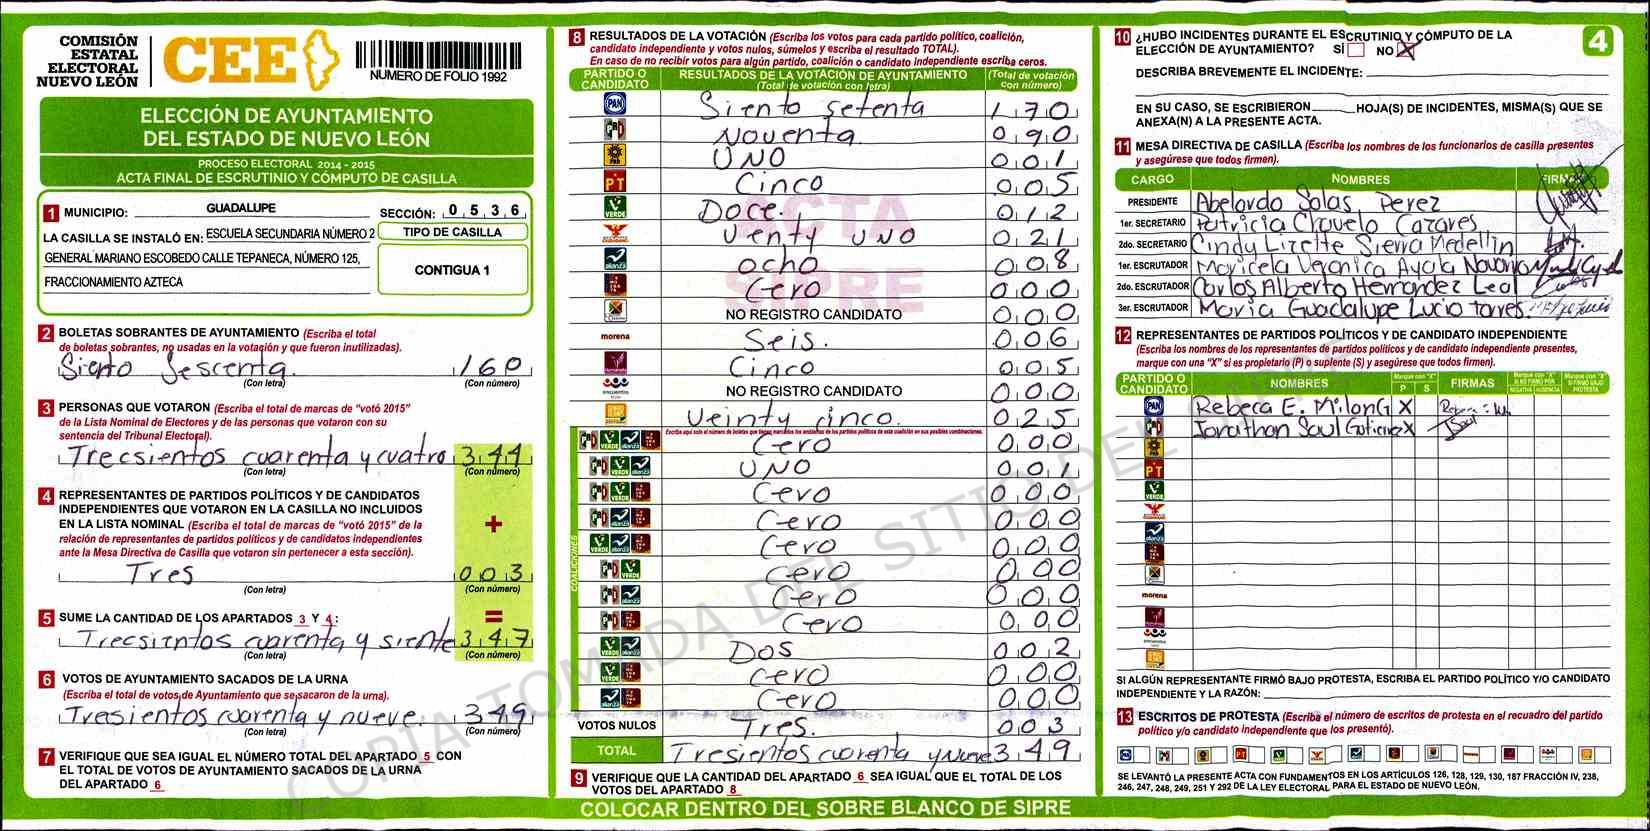 COMISIÓN
ESTATAL
ELECTORAL
NUEVO LEÓN
CEE
NÚMERO DE FOLIO 1992
ELECCIÓN DE AYUNTAMIENTO
DEL ESTADO DE NUEVO LEÓN
PROCESO ELECTORAL 2014 - 2015
ACTA FINAL DE ESCRUTINIO Y CÓMPUTO DE CASILLA
1 MUNICIPIO: GUADALUPE SECCIÓN: 0 5 3 6
LA CASILLA SE INSTALÓ EN: ESCUELA SECUNDARIA NÚMERO 2
GENERAL MARIANO ESCOBEDO CALLE TEPANECA, NÚMERO 125,
FRACCIONAMIENTO AZTECA
TIPO DE CASILLA
CONTIGUA 1
2 BOLETAS SOBRANTES DE AYUNTAMIENTO (Escriba el total
de boletas sobrantes, no usadas en la votación y que fueron inutilizadas).
Siento Sescenta. 160
(Con letra) (Con número)
3 PERSONAS QUE VOTARON (Escriba el total de marcas de "votó 2015"
de la Lista Nominal de Electores y de las personas que votaron con su
sentencia del Tribunal Electoral).
Trecsientos cuarenta y cuatro 344
(Con letra) (Con número)
4 REPRESENTANTES DE PARTIDOS POLÍTICOS Y DE CANDIDATOS
INDEPENDIENTES QUE VOTARON EN LA CASILLA NO INCLUIDOS
EN LA LISTA NOMINAL (Escriba el total de marcas de "votó 2015" de la
relación de representantes de partidos políticos y de candidatos independientes
ante la Mesa Directiva de Casilla que votaron sin pertenecer a esta sección).
+
Tres 003
(Con letra) (Con número)
5 SUME LA CANTIDAD DE LOS APARTADOS 3 Y 4: =
Trecsientos cuarenta y siente 347
(Con letra) (Con número)
6 VOTOS DE AYUNTAMIENTO SACADOS DE LA URNA
(Escriba el total de votos de Ayuntamiento que se sacaron de la urna).
Tresientos cuarenta y nueve. 349
(Con letra) (Con número)
7 VERIFIQUE QUE SEA IGUAL EL NÚMERO TOTAL DEL APARTADO 5 CON
EL TOTAL DE VOTOS DE AYUNTAMIENTO SACADOS DE LA URNA
DEL APARTADO 6
8 RESULTADOS DE LA VOTACIÓN (Escriba los votos para cada partido político, coalición,
candidato independiente y votos nulos, súmelos y escriba el resultado TOTAL).
En caso de no recibir votos para algún partido, coalición o candidato independiente escriba ceros.
PARTIDO O CANDIDATO RESULTADOS DE LA VOTACIÓN DE AYUNTAMIENTO (Total de votación con letra) (Total de votación con número)
PAN Siento setenta 170
PRI Noventa 090
PRD UNO 001
PT Cinco 005
VERDE Doce. 012
Venty UNO 021
alianza ocho 008
Cero 000
NO REGISTRO CANDIDATO 000
morena Seis. 006
Cinco 005
NO REGISTRO CANDIDATO 000
Veinty cinco. 025
Escriba aquí solo el número de boletas que tienen marcados los emblemas de los partidos políticos de esta coalición en sus posibles combinaciones.
COALICIONES
Cero 000
UNO 001
Cero 000
Cero 000
Cero 000
Cero 000
Cero 000
Cero 000
Dos 002
Cero 000
Cero 000
VOTOS NULOS Tres. 003
TOTAL Tresientos cuarenta y Nueve 349
ACTA
SIPRE
9 VERIFIQUE QUE LA CANTIDAD DEL APARTADO 6 SEA IGUAL QUE EL TOTAL DE LOS
VOTOS DEL APARTADO 8
COLOCAR DENTRO DEL SOBRE BLANCO DE SIPRE
4
10 ¿HUBO INCIDENTES DURANTE EL ESCRUTINIO Y CÓMPUTO DE LA
ELECCIÓN DE AYUNTAMIENTO? SÍ NO X
DESCRIBA BREVEMENTE EL INCIDENTE:
EN SU CASO, SE ESCRIBIERON HOJA(S) DE INCIDENTES, MISMA(S) QUE SE
ANEXA(N) A LA PRESENTE ACTA.
11 MESA DIRECTIVA DE CASILLA (Escriba los nombres de los funcionarios de casilla presentes
y asegúrese que todos firmen).
CARGO NOMBRES FIRMA
PRESIDENTE Abelardo Salas Perez
1er. SECRETARIO Patricia Chavelo Cazares
2do. SECRETARIO Cindy Lizette Sierra Medellin
1er. ESCRUTADOR Maricela Veronica Ayala Navarro
2do. ESCRUTADOR Carlos Alberto Hernandez Leal
3er. ESCRUTADOR Maria Guadalupe Lucio Torres.
12 REPRESENTANTES DE PARTIDOS POLÍTICOS Y DE CANDIDATO INDEPENDIENTE
(Escriba los nombres de los representantes de partidos políticos y de candidato independiente presentes,
marque con una "X" si es propietario (P) o suplente (S) y asegúrese que todos firmen).
PARTIDO O CANDIDATO NOMBRES Marque con "X" P S FIRMAS
PAN Rebeca E. Milan G X
PRI Jonathan Saul Gutierrez X
PRD
PT
VERDE
alianza
morena
SI ALGÚN REPRESENTANTE FIRMÓ BAJO PROTESTA, ESCRIBA EL PARTIDO POLÍTICO Y/O CANDIDATO
INDEPENDIENTE Y LA RAZÓN:
13 ESCRITOS DE PROTESTA (Escriba el número de escritos de protesta en el recuadro del partido
político y/o candidato independiente que los presentó).
SE LEVANTÓ LA PRESENTE ACTA CON FUNDAMENTOS EN LOS ARTÍCULOS 126, 128, 129, 130, 187 FRACCIÓN IV, 238,
246, 247, 248, 249, 251 Y 292 DE LA LEY ELECTORAL PARA EL ESTADO DE NUEVO LEÓN.
COPIA TOMADA DEL SITIO DEL SIPRE